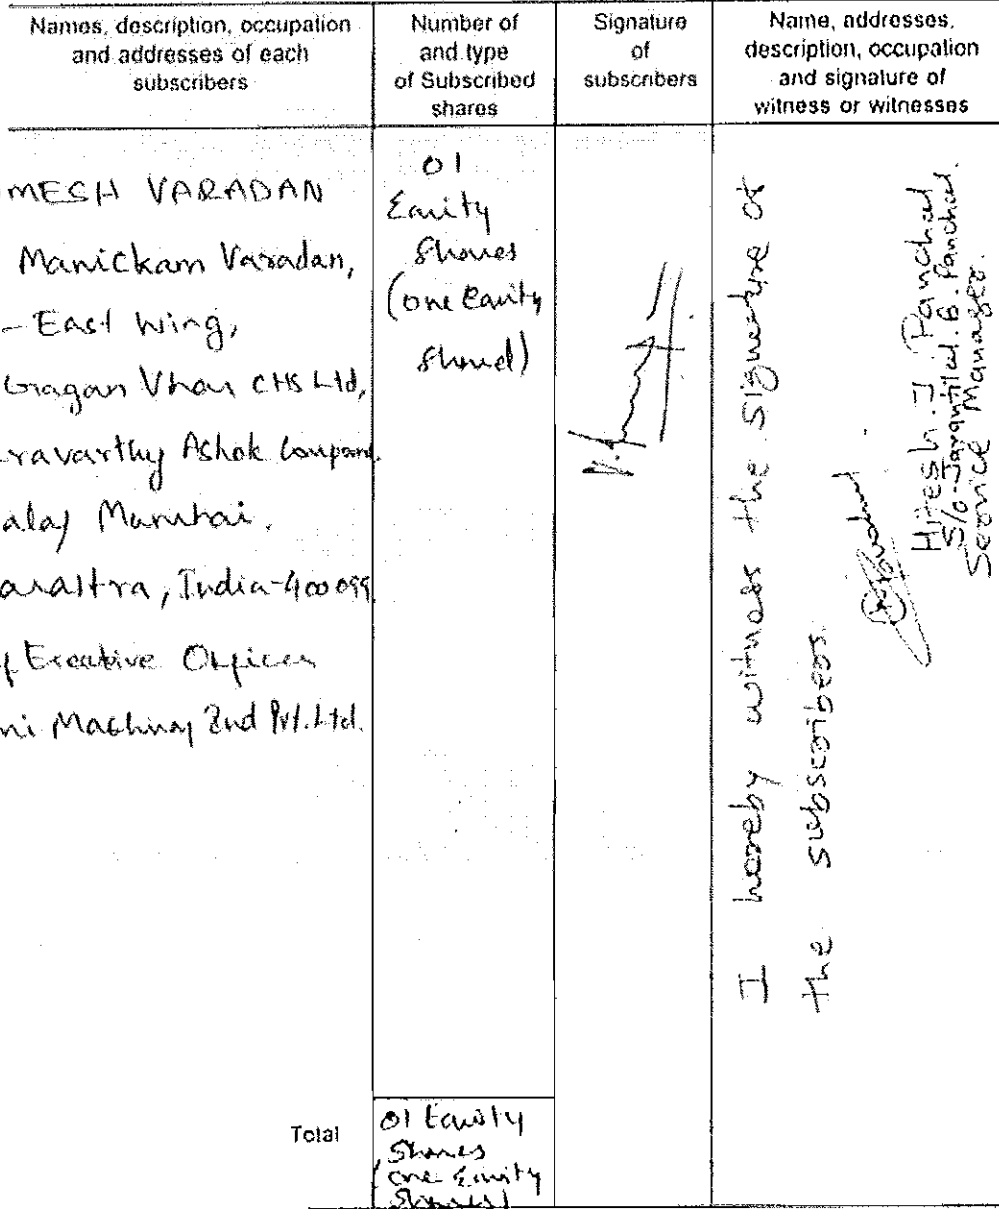 Names, description, occupation
and addresses of each
subscribers
Number of
and type
of Subscribed
shares
Signature
of
subscribers
Name, addresses,
description, occupation
and signature of
witness or witnesses
MESH VARADAN
Manickam Varadan,
- East Wing,
Gagan Vhar CHS Ltd,
ravarthy Ashok
Mumbai.
India-400099
Executive Officer
ni Machinay Ind Pvt. Ltd.
01
Equity
Shares
(one Equity
Shares)
I hereby witness the signature of
the subscribers.
Hitesh. J Panchal
S/o-Jayantilal. B. Panchal.
Service Manager.
Total
01 Equity
Shares
(one Equity
Shares)